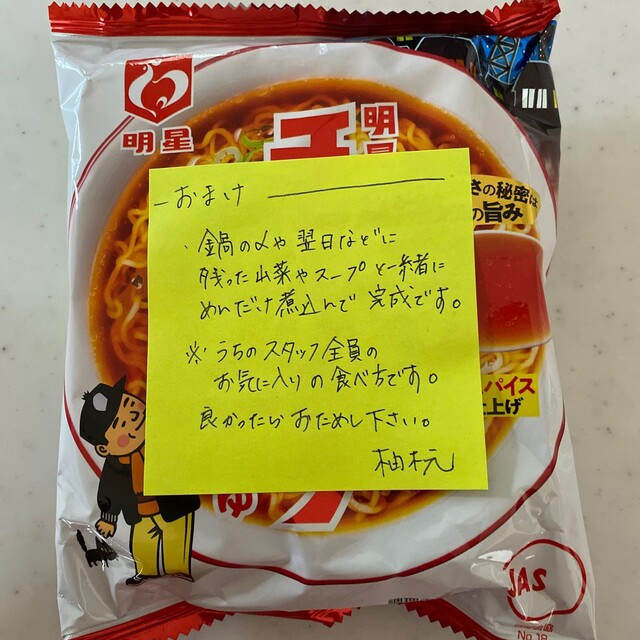 明星
明星
さの秘密は
の旨み
おまけ
・鍋の〆や翌日などに
残った山菜やスープと一緒に
めんだけ煮込んで完成です。
※うちのスタッフ全員の
お気に入りの食べ方です。
良かったらおためし下さい。
スパイス
仕上げ
ゆ
JAS
No.18